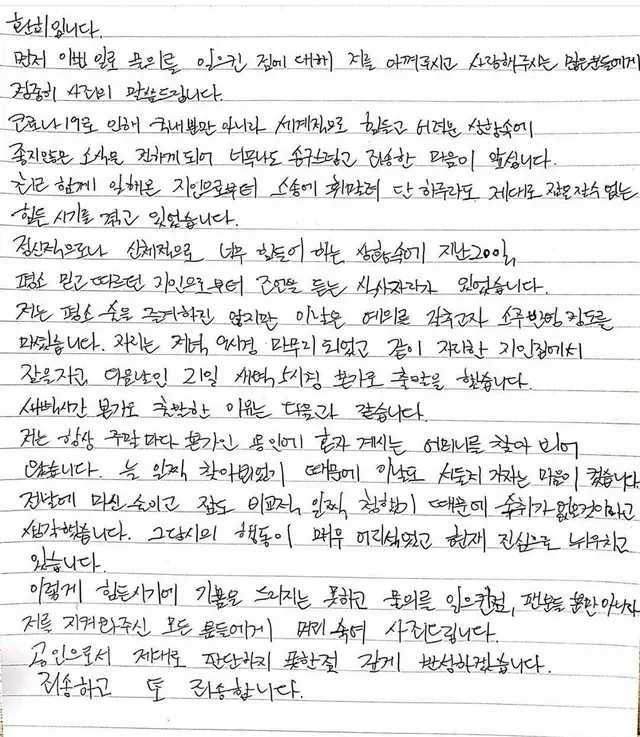 환희입니다.
먼저 이번 일로 물의를 일으킨 점에 대해 저를 아껴주시고 사랑해주시는 많은분들에게
정중히 사죄의 말씀드립니다.
코로나19로 인해 국내뿐만 아니라 세계적으로 힘들고 어려운 상황속에
좋지않은 소식을 전하게되어 너무나도 송구스럽고 죄송한 마음이 앞섭니다.
최근 함께 일해온 지인으로부터 소송에 휘말려 단 하루라도 제대로 잠을잘수 없는
힘든 시기를 겪고 있었습니다.
정신적으로나 신체적으로 너무 힘들어 하는 상황속에 지난 20일,
평소 믿고 따르던 지인으로부터 조언을 듣는 식사자리가 있었습니다.
저는 평소 술을 즐겨하진 않지만 이날은 예의를 갖추고자 소주반병 정도를
마셨습니다. 자리는 저녁 9시경 마무리 되었고 같이 자리한 지인집에서
잠을자고 다음날인 21일 새벽 5시경 본가로 출발을 했습니다.
새벽시간 본가로 출발한 이유는 다음과 같습니다.
저는 항상 주말마다 본가인 용인에 혼자 계시는 어머니를 찾아 뵈어
왔습니다. 늘 일찍 찾아뵈었기 때문에 이날도 서둘러 가자는 마음이 컸습니다
전날에 마신 술이고 잠도 비교적 일찍 청했기 때문에 숙취가 없을것이라고
생각했습니다. 그당시의 행동이 매우 어리석었고 현재 진심으로 뉘우치고
있습니다.
이렇게 힘든시기에 기쁨을 드리지는 못하고 물의를 일으켜, 팬분들 뿐만아니라
저를 지켜봐주신 모든 분들에게 머리 숙여 사죄드립니다.
공인으로서 제대로 판단하지 못한점 깊게 반성하겠습니다.
죄송하고 또 죄송합니다.